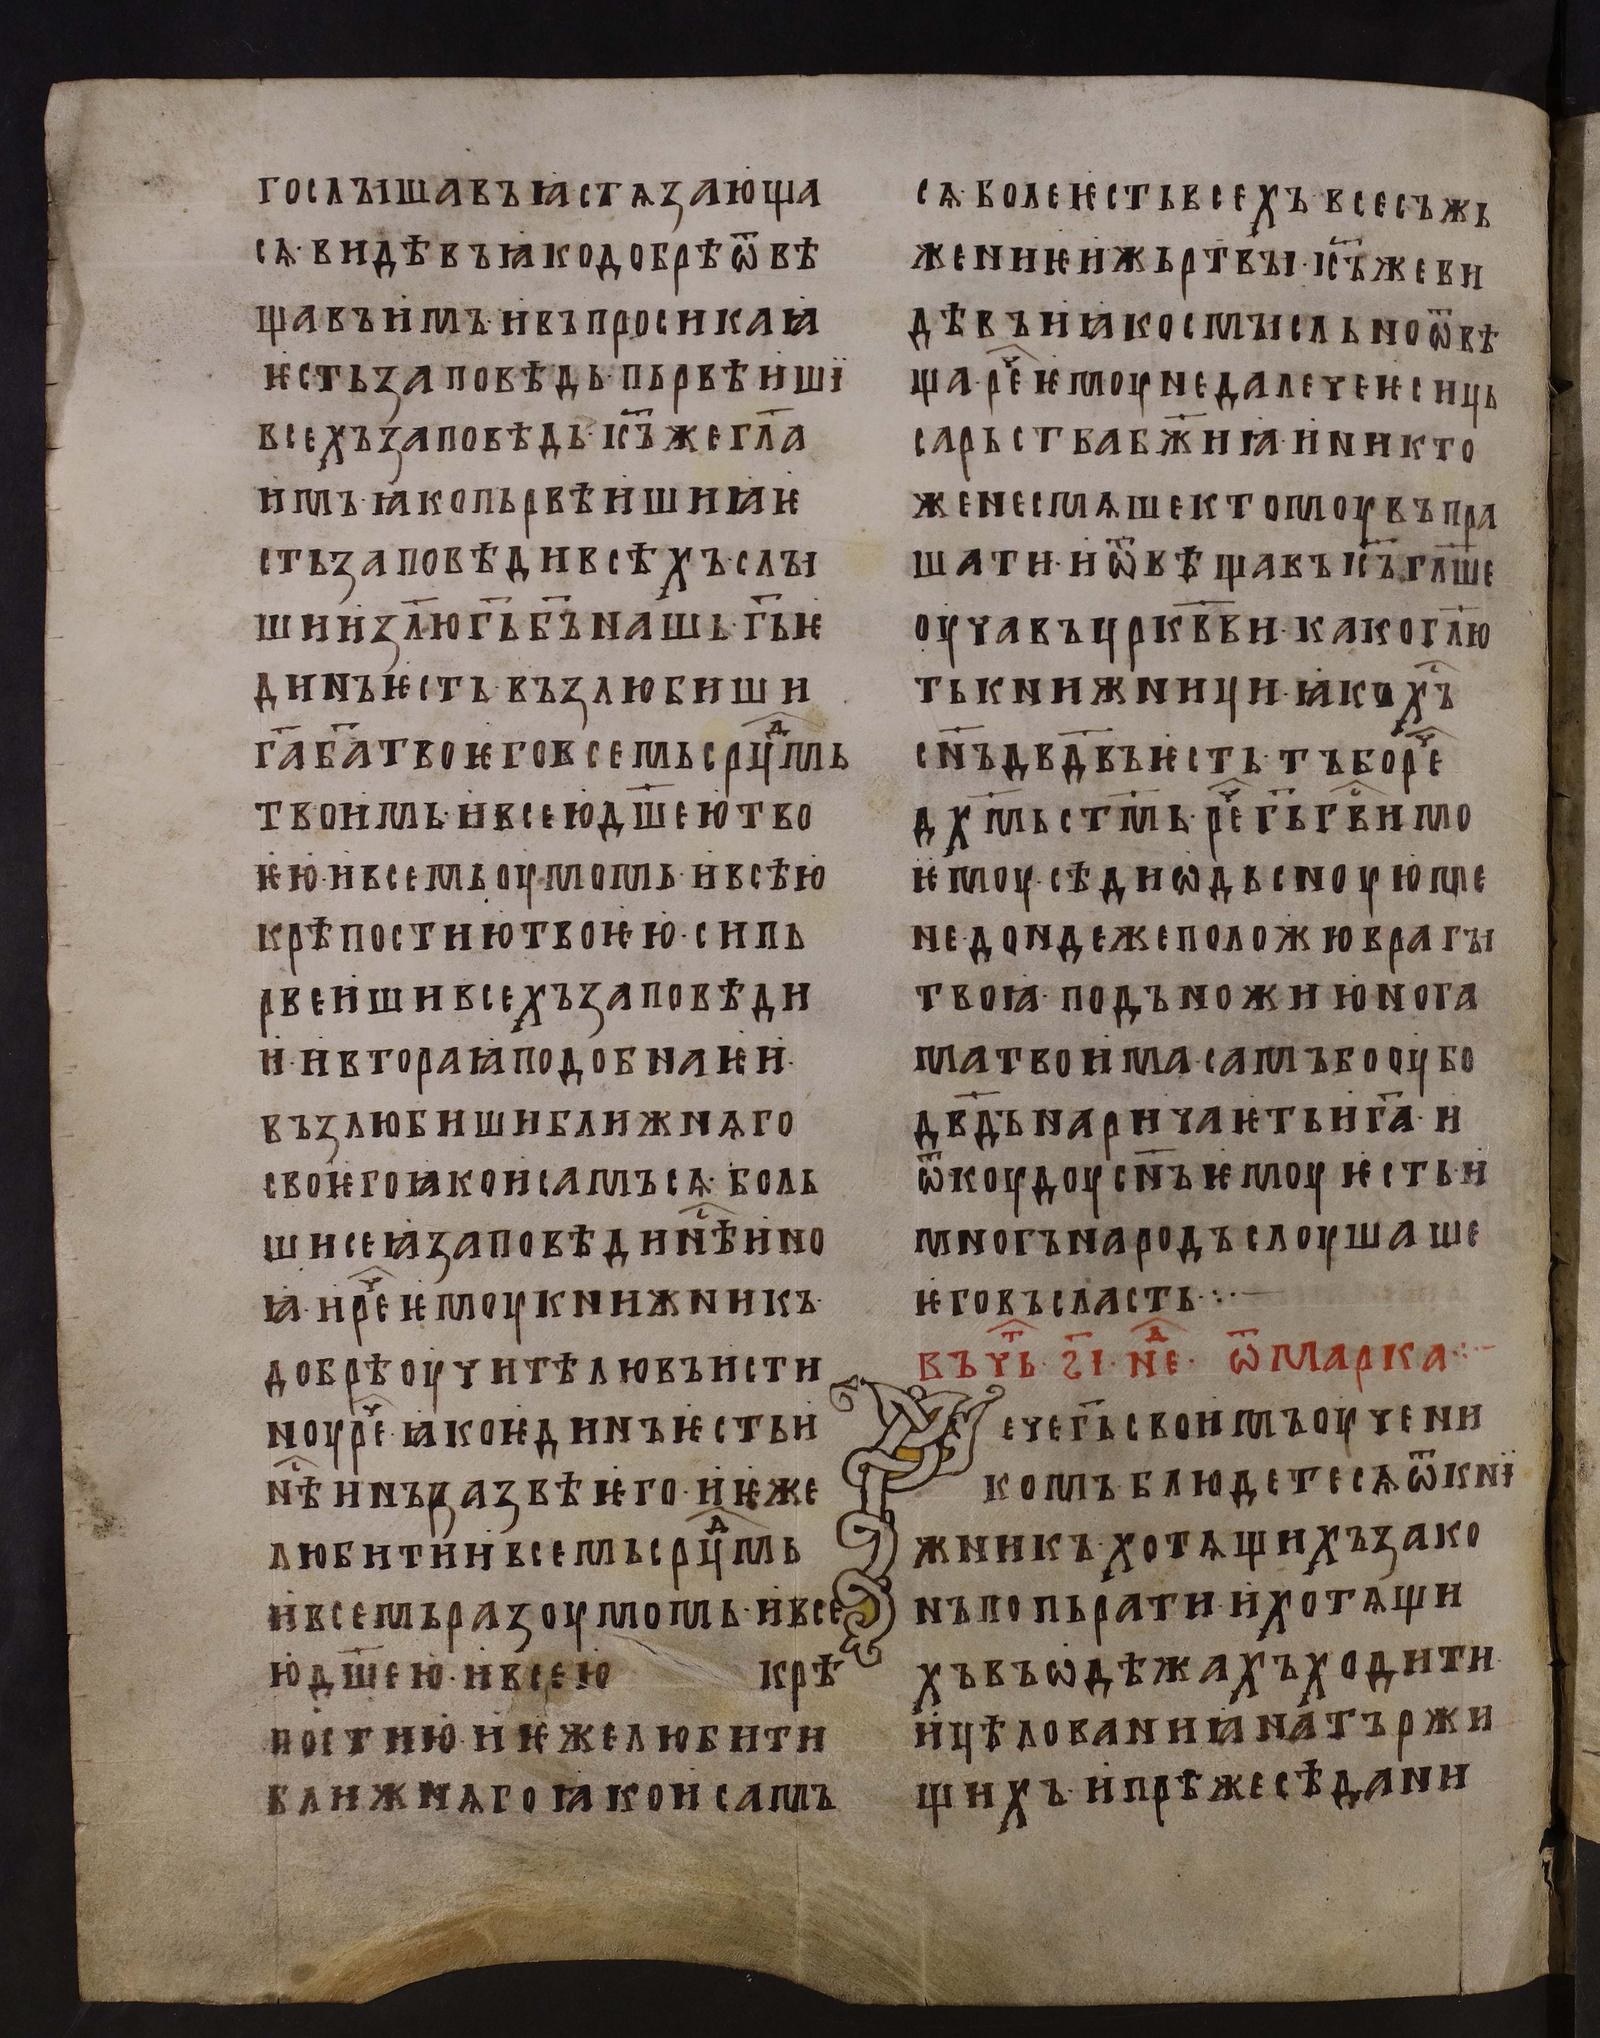 гослꙑшавъꙗстѧзающа
сѧ·видѣвъꙗкодобрѣѿвѣ
щавъимъ·ивъпросикаꙗ
ѥстьзаповѣдь·пьрвѣишї
всехъзаповѣдь·іс҃ъжегл҃а
имъ·ꙗкопьрвѣишиꙗѥ
стьзаповѣдивсѣхъ·слꙑ
шииꙁл҃юг҃ьб҃ънашь·г҃ьѥ
динъѥсть·въꙁлюбиши
г҃аб҃атвоѥговсемьсрцⷣмь
твоимь·ивсеюдш҃еютво
ѥю·ивсемьоумомь·ивсѣю
крѣпостиютвоѥю·сипь
рвеишивсехъзаповѣди
и·ивтораꙗподобнаѥи·
въꙁлюбишиближнѧго
своѥгоꙗкоисамъсѧ·боль
шисеꙗзаповѣдинⷭѣино
ꙗ·ирⷱеѥмоукнижникъ·
добрѣоучитѣлювъисти
ноурⷱе·ꙗкоѥдинъѥстьи
нⷭѣинъразвѣѥго·иѥже
любитииивсемьсрцⷣмь
ивсемьразоумомь·ивсе
юдш҃ею·ивсею крѣ
постию·иѥжелюбити
ближнѧгоꙗкоисамъ
сѧ·болеѥстьвсехъ·всесъжь
жениѥижьртвꙑ·іс҃ъжеви
дѣвъиꙗкосмꙑсльноѿвѣ
ща·рⷱеѥмоунедалечеѥсиць
сарьствабж҃иꙗ·иникто
женесмѧшектомоувъпра
шати·иѿвѣщавъіс҃ъгл҃ше
оучавъцрк҃вьи·какогл҃ю
тькнижници·ꙗкохⷭъ
сн҃ъдвд҃въѥсть·тъборⷱе
дх҃мьстм҃ь·рⷱег҃ьгⷭвимо
ѥмоу·сѣдиѡдьсноуюмле
не·дондежеположюврагꙑ
твоꙗ·подъножиюнога
матвоима·самъбооубо
дв҃дънаричаѥтьиг҃а·и
ѿкоудоусн҃ъѥмоуѥсть·и
многънародъслоушаше
ѥговъсласть·:·—
въчⷮь·ѕ҃і·нⷣе·ѿмарка·:·—
Речег҃ьсвоимъоучени
комъблюдетесѧѿкнї
жникъ·хотѧщихъзако
нъпопьрати·ихотѧщи
хъвъѡдѣжахъходити·
ицѣлованиꙗнатържи
щихъ·ипрѣжесѣдани